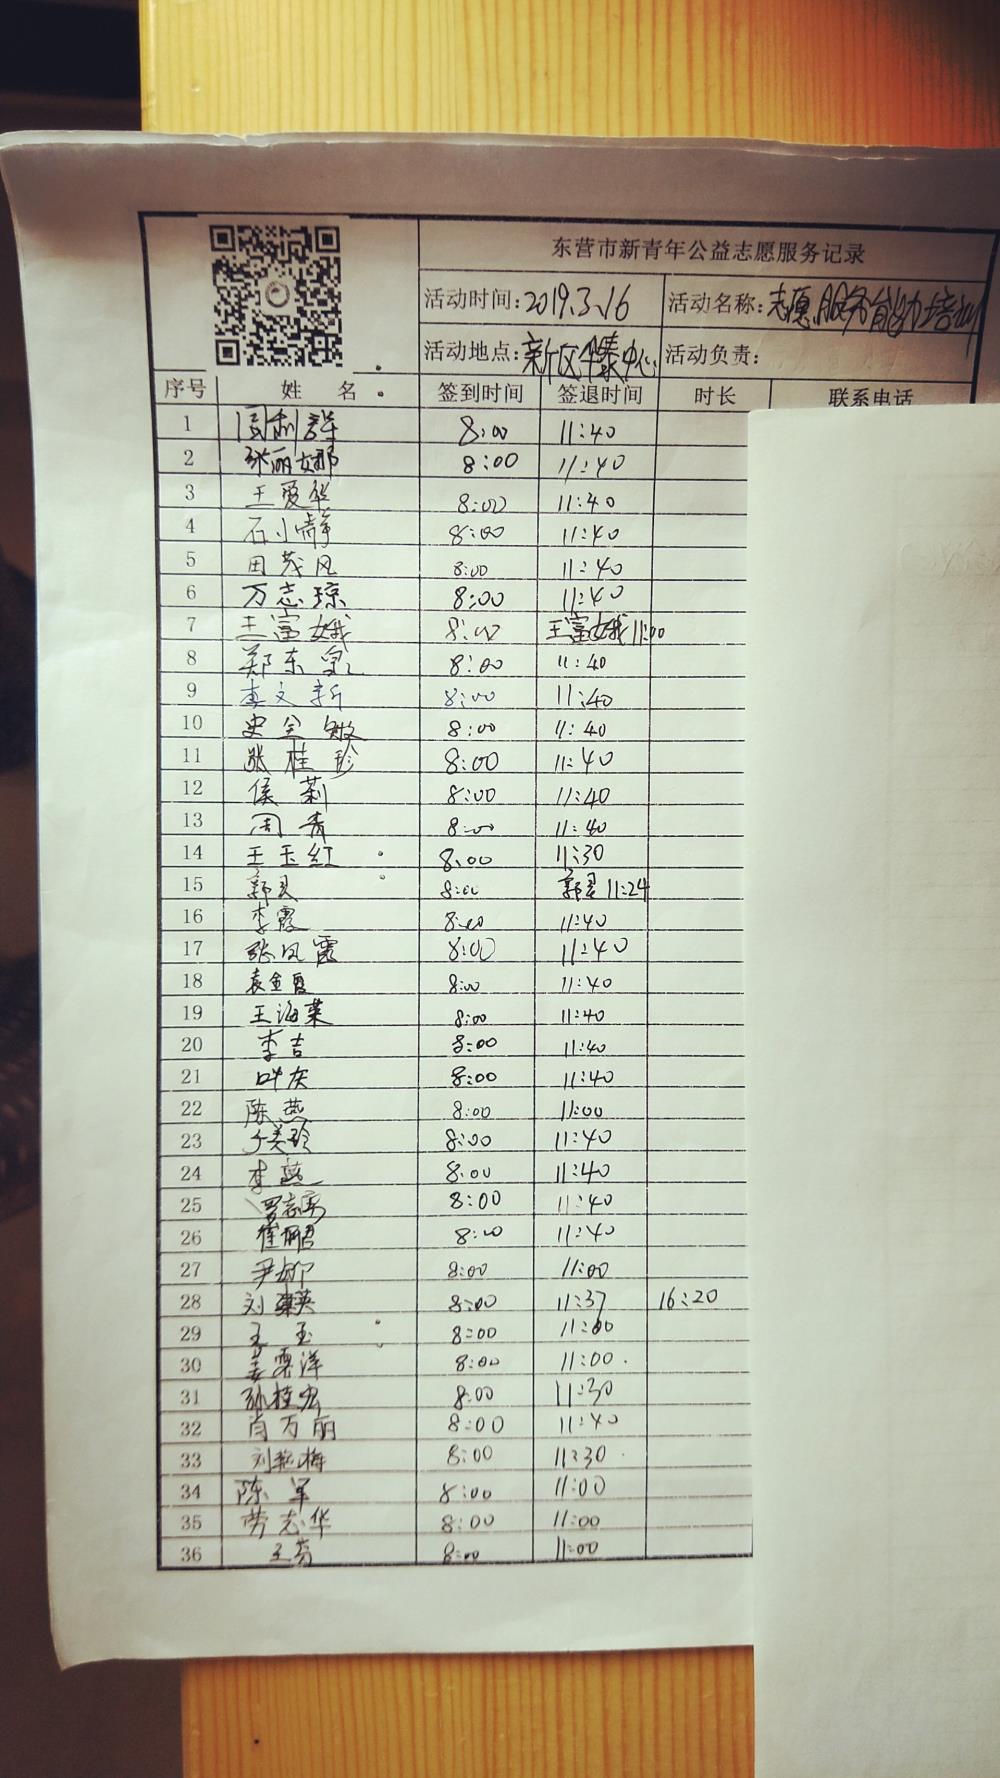 东营市新青年公益志愿服务记录
活动时间:2019.3.16 活动名称:志愿服务能力培训
活动地点:新区华泰中心 活动负责:
序号 姓 名 签到时间 签退时间 时长 联系电话
1 8:00 11:40
2 张丽娜 8:00 11:40
3 王爱华 8:00 11:40
4 石小静 8:00 11:40
5 田茂风 8:00 11:40
6 万志琼 8:00 11:40
7 王富娥 8:00 王富娥 11:00
8 郑东 8:00 11:40
9 李文新 8:00 11:40
10 史全敏 8:00 11:40
11 张桂珍 8:00 11:40
12 侯莉 8:00 11:40
13 周青 8:00 11:40
14 王玉红 8:00 11:30
15 郭灵 8:00 郭灵 11:24
16 李霞 8:00 11:40
17 张凤霞 8:00 11:40
18 袁金霞 8:00 11:40
19 王海荣 8:00 11:40
20 李吉 8:00 11:40
21 8:00 11:40
22 陈燕 8:00 11:00
23 于美玲 8:00 11:40
24 李燕 8:00 11:40
25 8:00 11:40
26 崔丽君 8:00 11:40
27 尹柳 8:00 11:00
28 刘英 8:00 11:37 16:20
29 王玉 8:00 11:00
30 姜粟洋 8:00 11:00.
31 孙桂宏 8:00 11:30
32 肖万丽 8:00 11:40
33 刘艳梅 8:00 11:30
34 陈军 8:00 11:00
35 劳志华 8:00 11:00
36 王芬 8:00 11:00